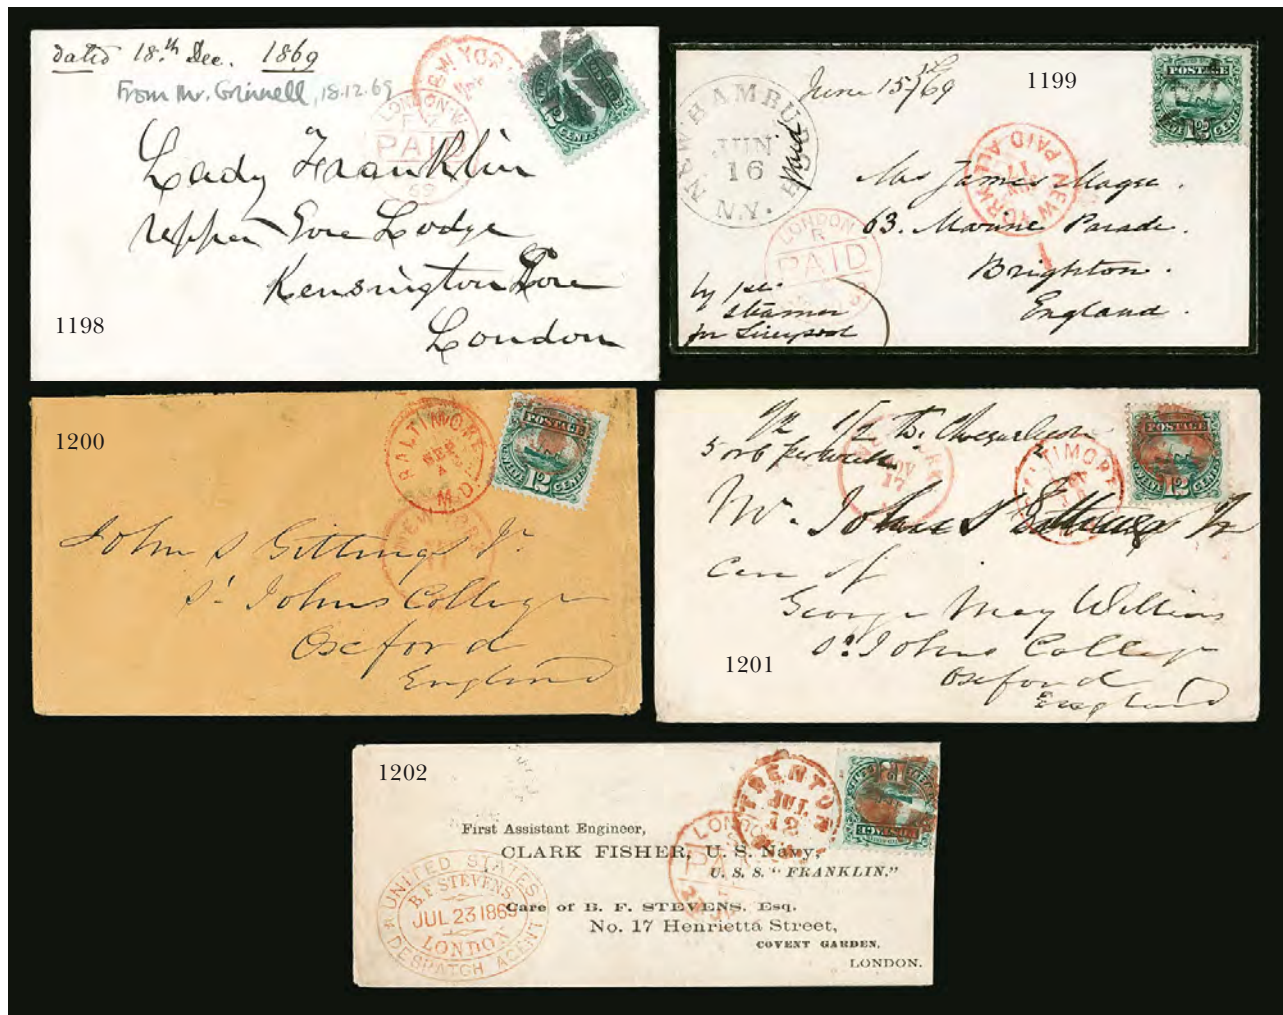 dated 18.th Dec. 1869
From Mr. Grinnell, 18.12.69
NEW YORK
LONDON. W
PAID
69
12
CENTS
Lady Franklin
Upper Gore Lodge
Kensington Gore
London
1198
1199
June 15th/69
POSTAGE
12
CENTS
NEW HAMBURGH
JUN
16
N.Y.
NEW YORK
PAID ALL
17
Mrs James Magee.
63. Marine Parade.
Brighton.
England.
LONDON
R
PAID
69
by
steamer
for Liverpool
1200
BALTIMORE
SEP
MD.
POSTAGE
TWELVE 12 CENTS
NEW YORK
John S Gittings Jr.
St Johns College
Oxford
England
1/2
5 or 6 per week
NOV
17
BALTIMORE
POSTAGE
TWELVE 12 CENTS
Mr. John S Gittings Jr
care of
George May
St. Johns College
Oxford
England
1201
1202
TRENTON
JUL
12
POSTAGE
LONDON
PAID
First Assistant Engineer,
CLARK FISHER, U. S. Navy,
U. S. S. "FRANKLIN."
Care of B. F. STEVENS, Esq.
No. 17 Henrietta Street,
COVENT GARDEN,
LONDON.
UNITED STATES
B.F. STEVENS
JUL 23 1869
LONDON
DESPATCH AGENT